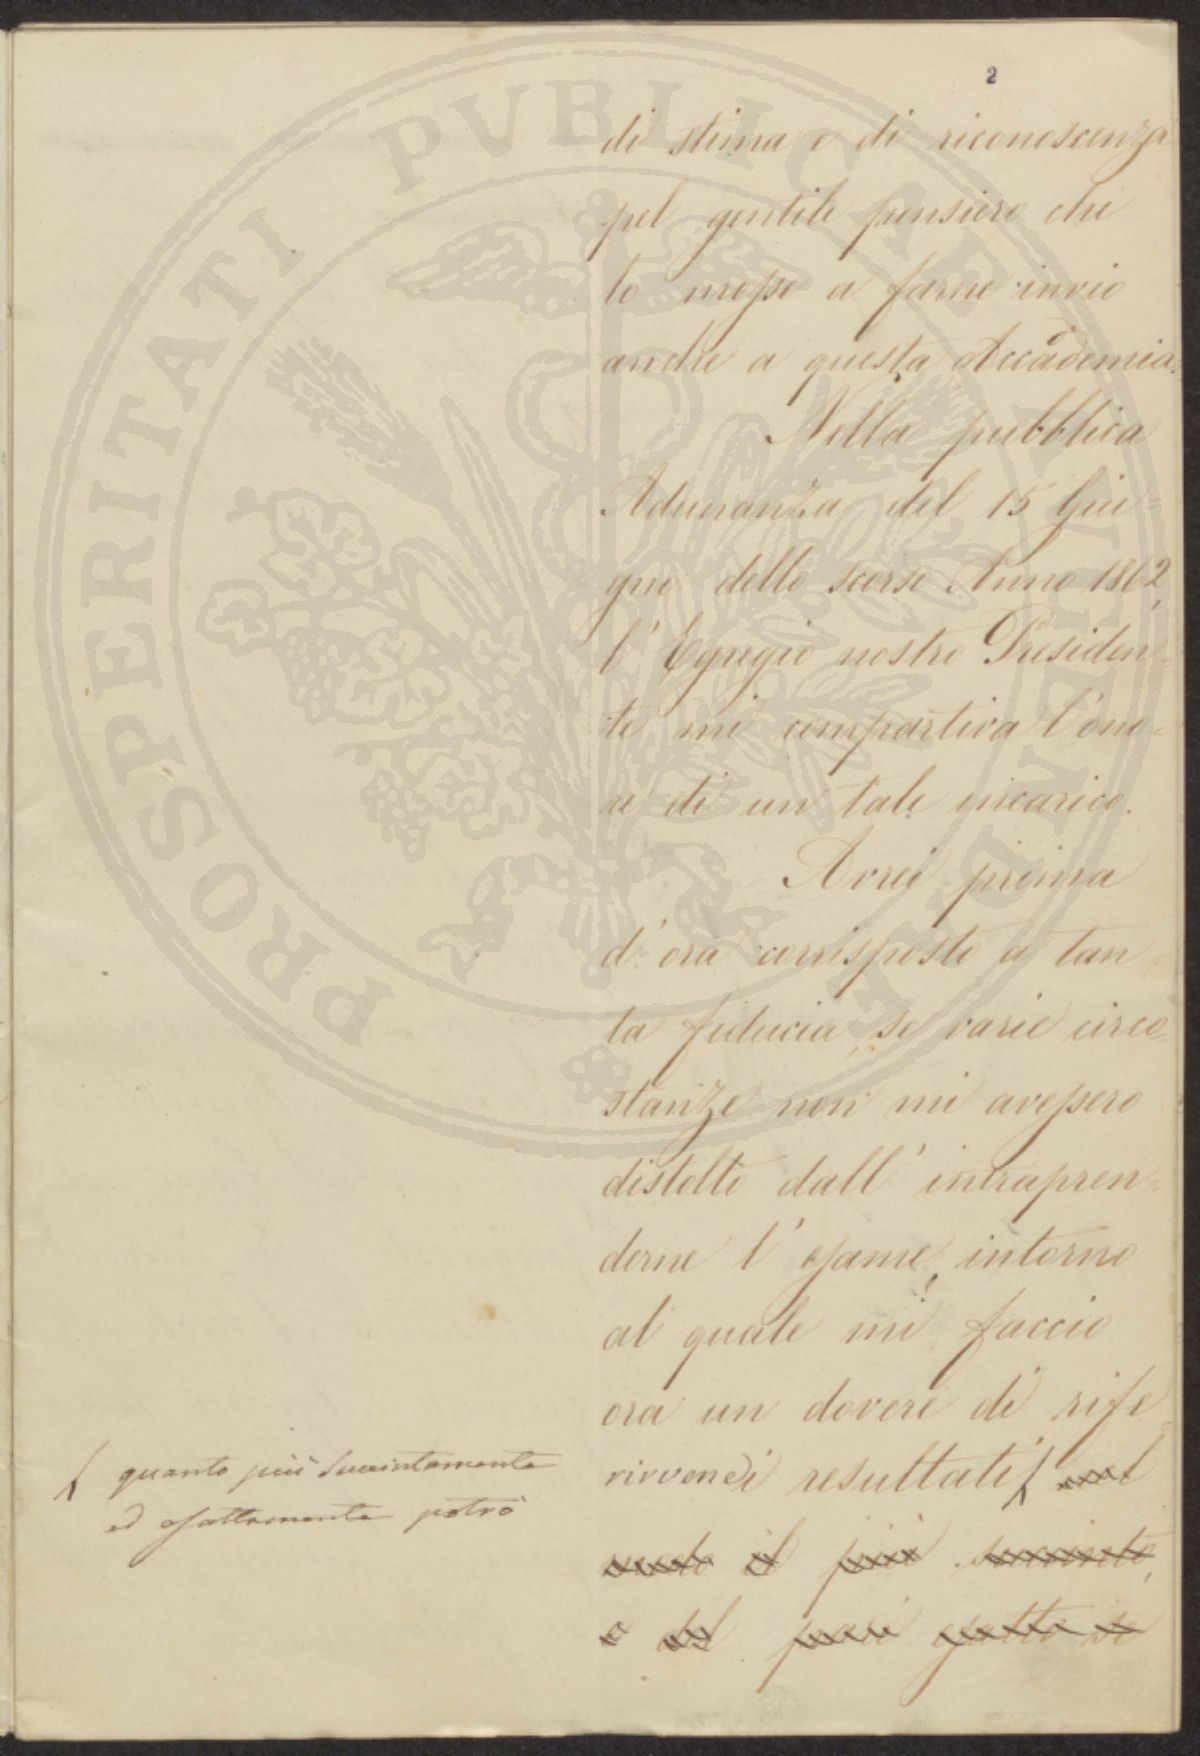 2
di stima e di riconoscenza
pel gentile pensiero che
lo mosse a farne invio
anche a questa Accademia.
Nella pubblica
Adunanza del 15 Giu=
gno dello scorso Anno 1862,
l'Egregio nostro Presiden=
te mi compartiva l'ono=
re di un tale incarico.
Avrei prima
d'ora corrisposto a tan=
ta fiducia, se varie circo=
stanze non mi avessero
distolto dall'intrapren=
derne l'esame, intorno
al quale mi faccio
ora un dovere di rife=
rirvene i resultati nel
modo il più succinto,
e del pari esatto se
quanto più succintamente
ed esattamente potrò
PROSPERITATI PVBLICAE AVGENDAE